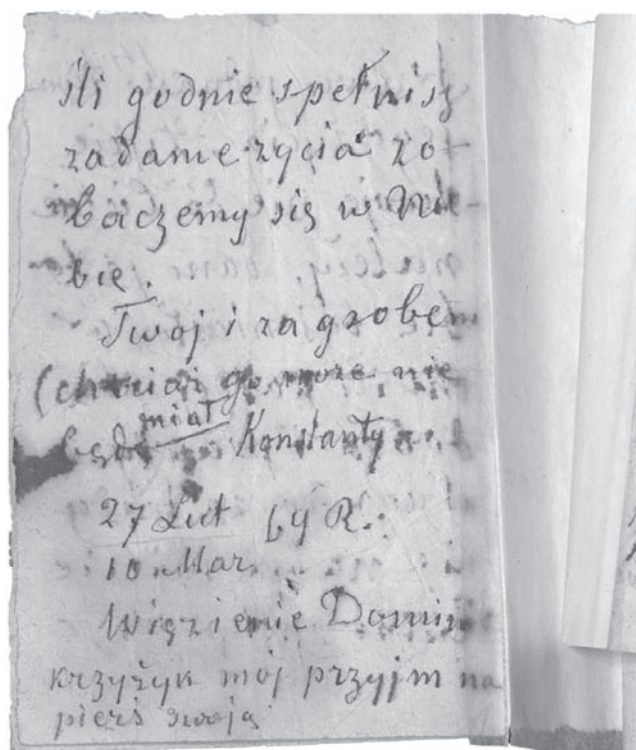 śli godnie spełnisz
zadanie życia zo-
baczemy się w Nie-
bie.
Twój i za grobem
(chociaż go może nie
będę miał Konstanty
27 Lut 64 R.
10 Mar
Więzienie Domin
krzyżyk mój przyjm na
pierś swoją